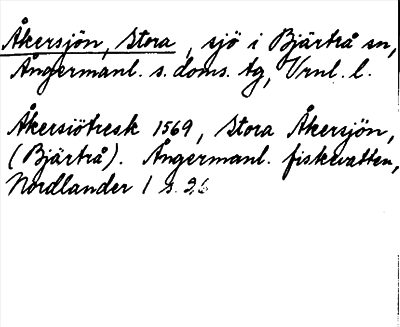 Åkersjön, Stora, sjö i Bjärtrå sn,
Ångermanl. s. doms. tg, Vrnl. l.
Åkersiötresk 1569, Stora Åkersjön,
(Bjärtrå). Ångermanl. fiskevatten,
Nordlander 1 s. 26